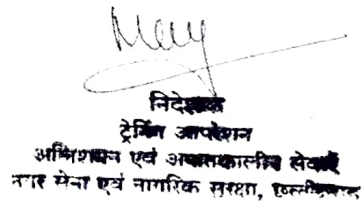 निदेशक
ट्रेनिंग आपरेशन
अग्निशमन एवं आपातकालीन सेवाएं
नगर सेना एवं नागरिक सुरक्षा,